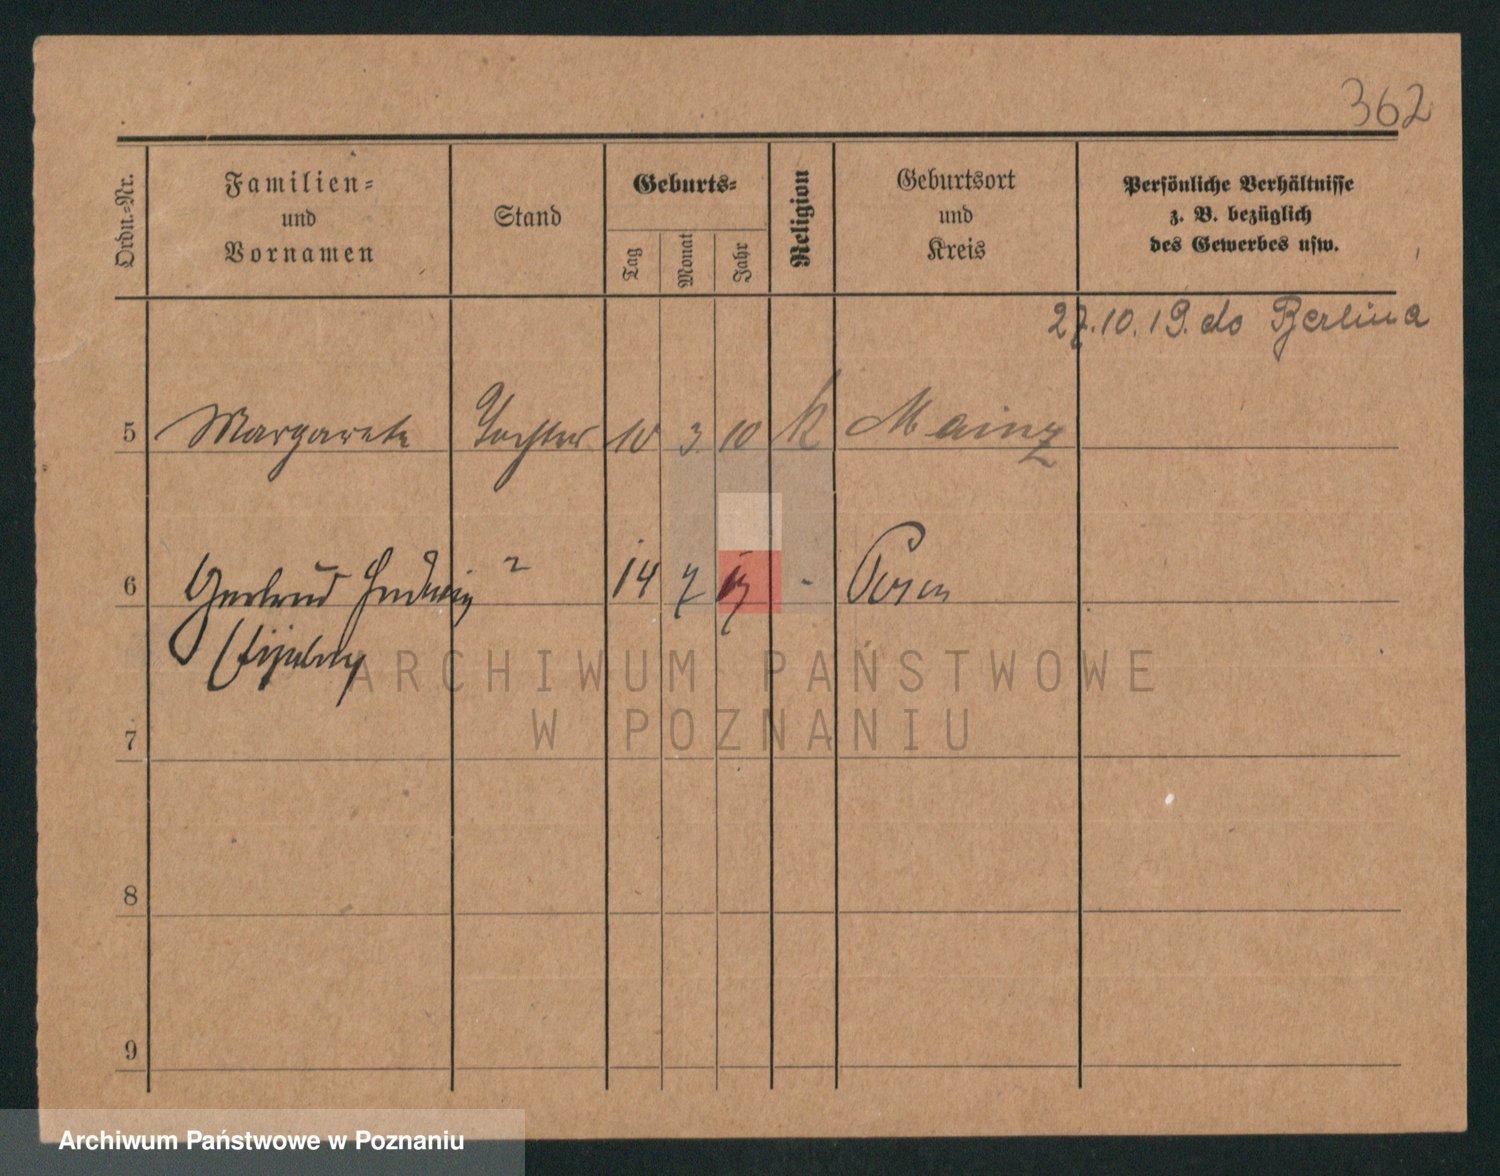 362
Ordn.-Nr.
Familien-
und
Vornamen
Stand
Geburts-
Tag
Monat
Jahr
Religion
Geburtsort
und
Kreis
Persönliche Verhältnisse
z. B. bezüglich
des Gewerbes usw.
27.10.19. do Berlina
5 Margarete Tochter 10 3 10 k Mainz
6 Gertrud Hedwig " 14 7 17 - Posen
ARCHIWUM PAŃSTWOWE
W POZNANIU
7
8
9
Archiwum Państwowe w Poznaniu